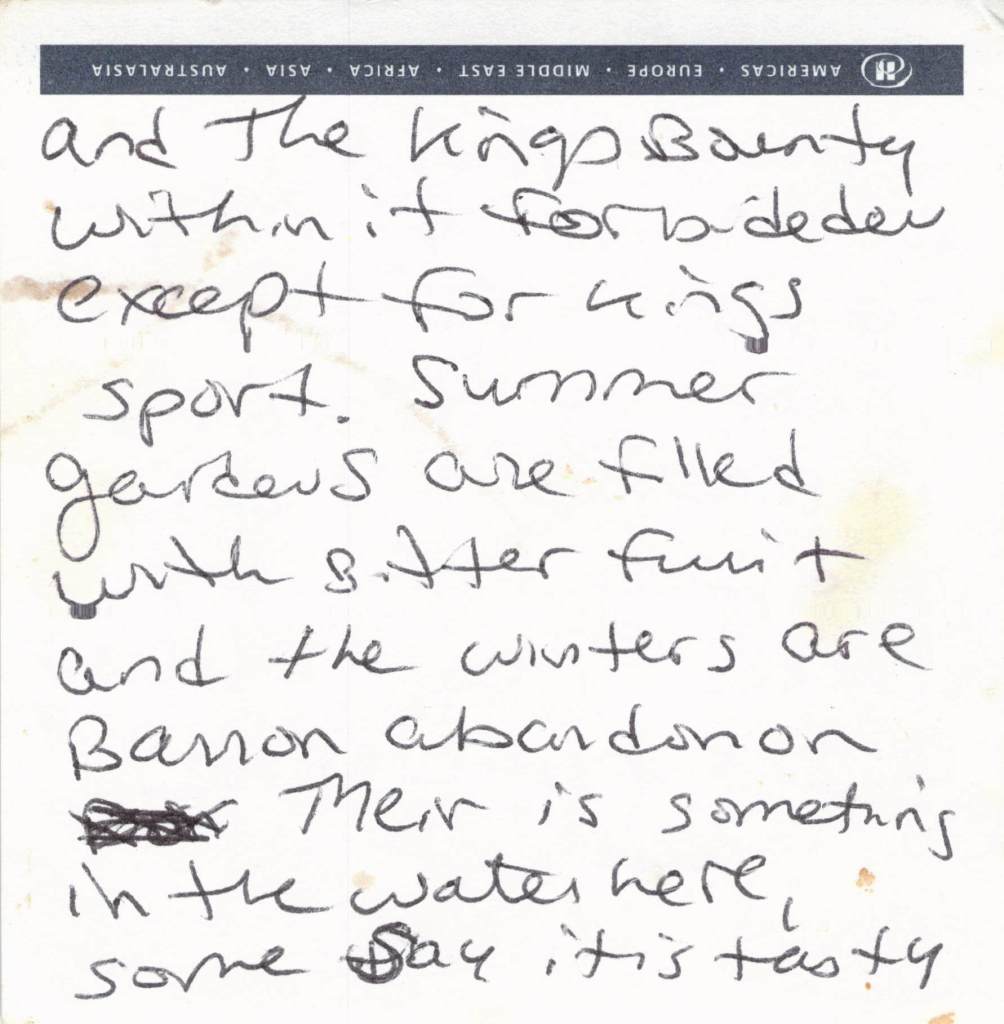 AMERICAS • EUROPE • MIDDLE EAST • AFRICA • ASIA • AUSTRALASIA
and The Kings Bounty
within it forbideden
except for kings
sport. Summer
gardens are filled
with bitter fruit
and the winters are
Barron abandonon
Their is something
in the water here,
some Say it is tasty